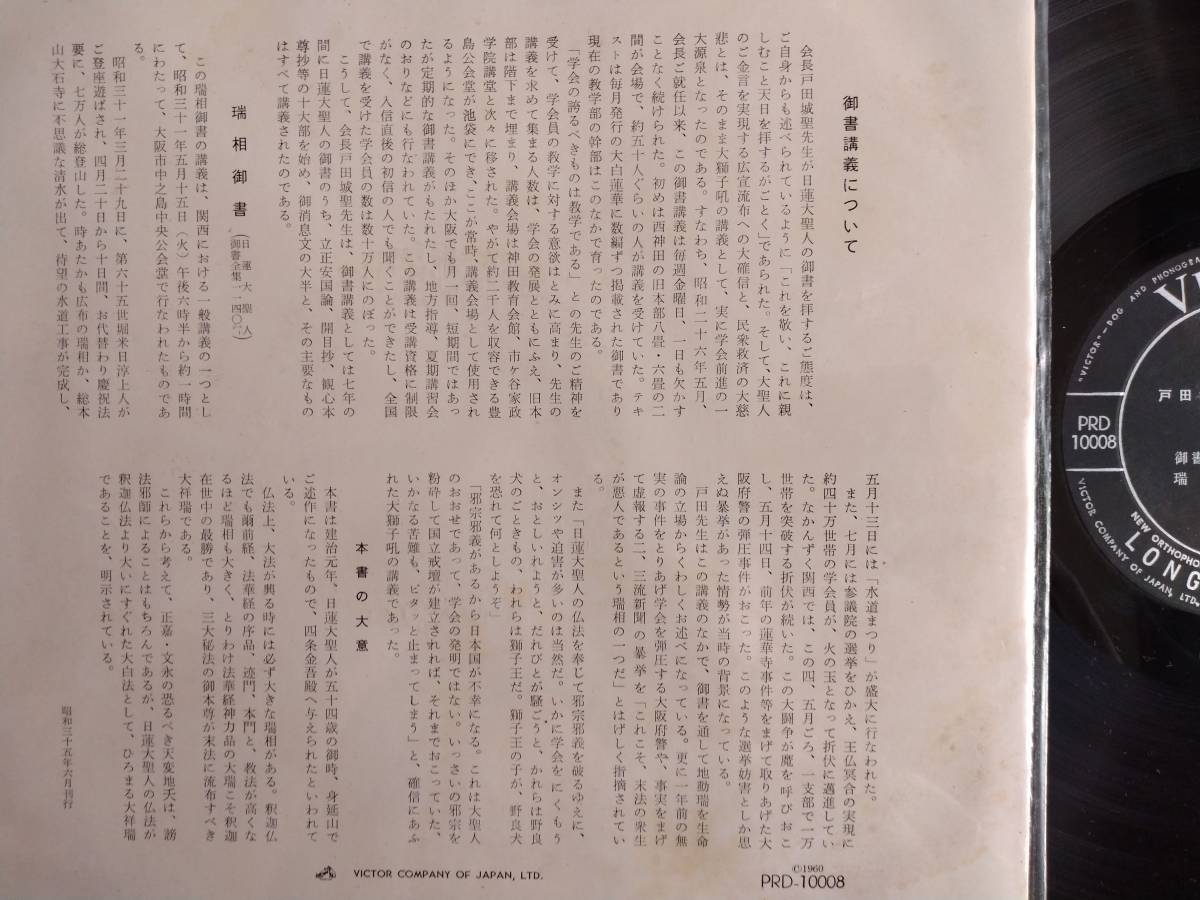 御書講義について
会長戸田城聖先生が日蓮大聖人の御書を拝するご態度は、
ご自身からも述べられているように「これを敬い、これに親
しむこと天日を拝するがごとく」であられた。そして、大聖人
のご金言を実現する広宣流布への大確信と、民衆救済の大慈
悲とは、そのまま大獅子吼の講義として、実に学会前進の一
大源泉となったのである。すなわち、昭和二十六年五月、
会長ご就任以来、この御書講義は毎週金曜日、一日も欠かす
ことなく続けられた。初めは西神田の旧本部八畳・六畳の二
間が会場で、約五十人ぐらいの人が講義を受けていた。テキ
ストは毎月発行の大白蓮華に数編ずつ掲載された御書であり
現在の教学部の幹部はこのなかで育ったのである。
「学会の誇るべきものは教学である」との先生のご精神を
受けて、学会員の教学に対する意欲はとみに高まり、先生の
講義を求めて集まる人数は、学会の発展とともにふえ、旧本
部は階下まで埋まり、講義会場は神田教育会館、市ヶ谷家政
学院講堂と次々に移された。やがて約二千人を収容できる豊
島公会堂が池袋にでき、ここが常時、講義会場として使用され
るようになった。そのほか大阪でも月一回、短期間ではあっ
たが定期的な御書講義がもたれたし、地方指導、夏期講習会
のおりなどにも行なわれていた。この講義は受講資格に制限
がなく、入信直後の初信の人でも聞くことができたし、全国
で講義を受けた学会員の数は数十万人にのぼった。
こうして、会長戸田城聖先生は、御書講義としては七年の
間に日蓮大聖人の御書のうち、立正安国論、開目抄、観心本
尊抄等の十大部を始め、御消息文の大半と、その主要なもの
はすべて講義されたのである。
瑞相御書 (日蓮大聖人御書全集一一四〇㌻)
この瑞相御書の講義は、関西における一般講義の一つとし
て、昭和三十一年五月十五日（火）午後六時半から約一時間
にわたって、大阪市中之島中央公会堂で行なわれたものであ
る。
昭和三十一年三月二十九日に、第六十五世堀米日淳上人が
ご登座遊ばされ、四月二十日から十日間、お代替わり慶祝法
要に、七万人が総登山した。時あたかも広布の瑞相か、総本
山大石寺に不思議な清水が出て、待望の水道工事が完成し、
五月十三日には「水道まつり」が盛大に行なわれた。
また、七月には参議院の選挙をひかえ、王仏冥合の実現に
約四十万世帯の学会員が、火の玉となって折伏に邁進してい
た。なかんずく関西では、この四、五月ごろ、一支部で一万
世帯を突破する折伏が続いた。この大闘争が魔を呼びおこ
し、五月十四日、前年の蓮華寺事件等をまげて取りあげた大
阪府警の弾圧事件がおこった。このような選挙妨害としか思
えぬ暴挙があった情勢が当時の背景になっている。
戸田先生はこの講義のなかで、御書を通して地動瑞を生命
論の立場からくわしくお述べになっている。更に一年前の無
実の事件をとりあげ学会を弾圧する大阪府警や、事実をまげ
て虚報する二、三流新聞の暴挙を「これこそ、末法の衆生
が悪人であるという瑞相の一つだ」とはげしく指摘されてい
る。
また「日蓮大聖人の仏法を奉じて邪宗邪義を破るゆえに、
オンシツや迫害が多いのは当然だ。いかに学会をにくもう
と、おとしいれようと、だれびとが騒ごうと、かれらは野良
犬のごときもの、われらは獅子王だ。獅子王の子が、野良犬
を恐れて何としようぞ」
「邪宗邪義があるから日本国が不幸になる。これは大聖人
のおおせであって、学会の発明ではない。いっさいの邪宗を
粉砕して国立戒壇が建立されれば、それまでおこっていた、
いかなる苦難も、ピタッと止まってしまう」と、確信にあふ
れた大獅子吼の講義であった。
本書の大意
本書は建治元年、日蓮大聖人が五十四歳の御時、身延山で
ご述作になったもので、四条金吾殿へ与えられたといわれて
いる。
仏法上、大法が興る時には必ず大きな瑞相がある。釈迦仏
法でも爾前経、法華経の序品、迹門、本門と、教法が高くな
るほど瑞相も大きく、とりわけ法華経神力品の大瑞こそ釈迦
在世中の最勝であり、三大秘法の御本尊が末法に流布すべき
大祥瑞である。
これらから考えて、正嘉・文永の恐るべき天変地夭は、謗
法邪師によることはもちろんであるが、日蓮大聖人の仏法が
釈迦仏法より大いにすぐれた大白法として、ひろまる大祥瑞
であることを、明示されている。
昭和三十五年六月刊行
VICTOR COMPANY OF JAPAN, LTD.
©1960
PRD-10008
"VICTOR"—DOG AND PHONOGRA
VI
戸田
PRD
10008
御書
瑞
NEW ORTHOPHO
LONG
VICTOR COMPANY OF JAPAN, LTD.